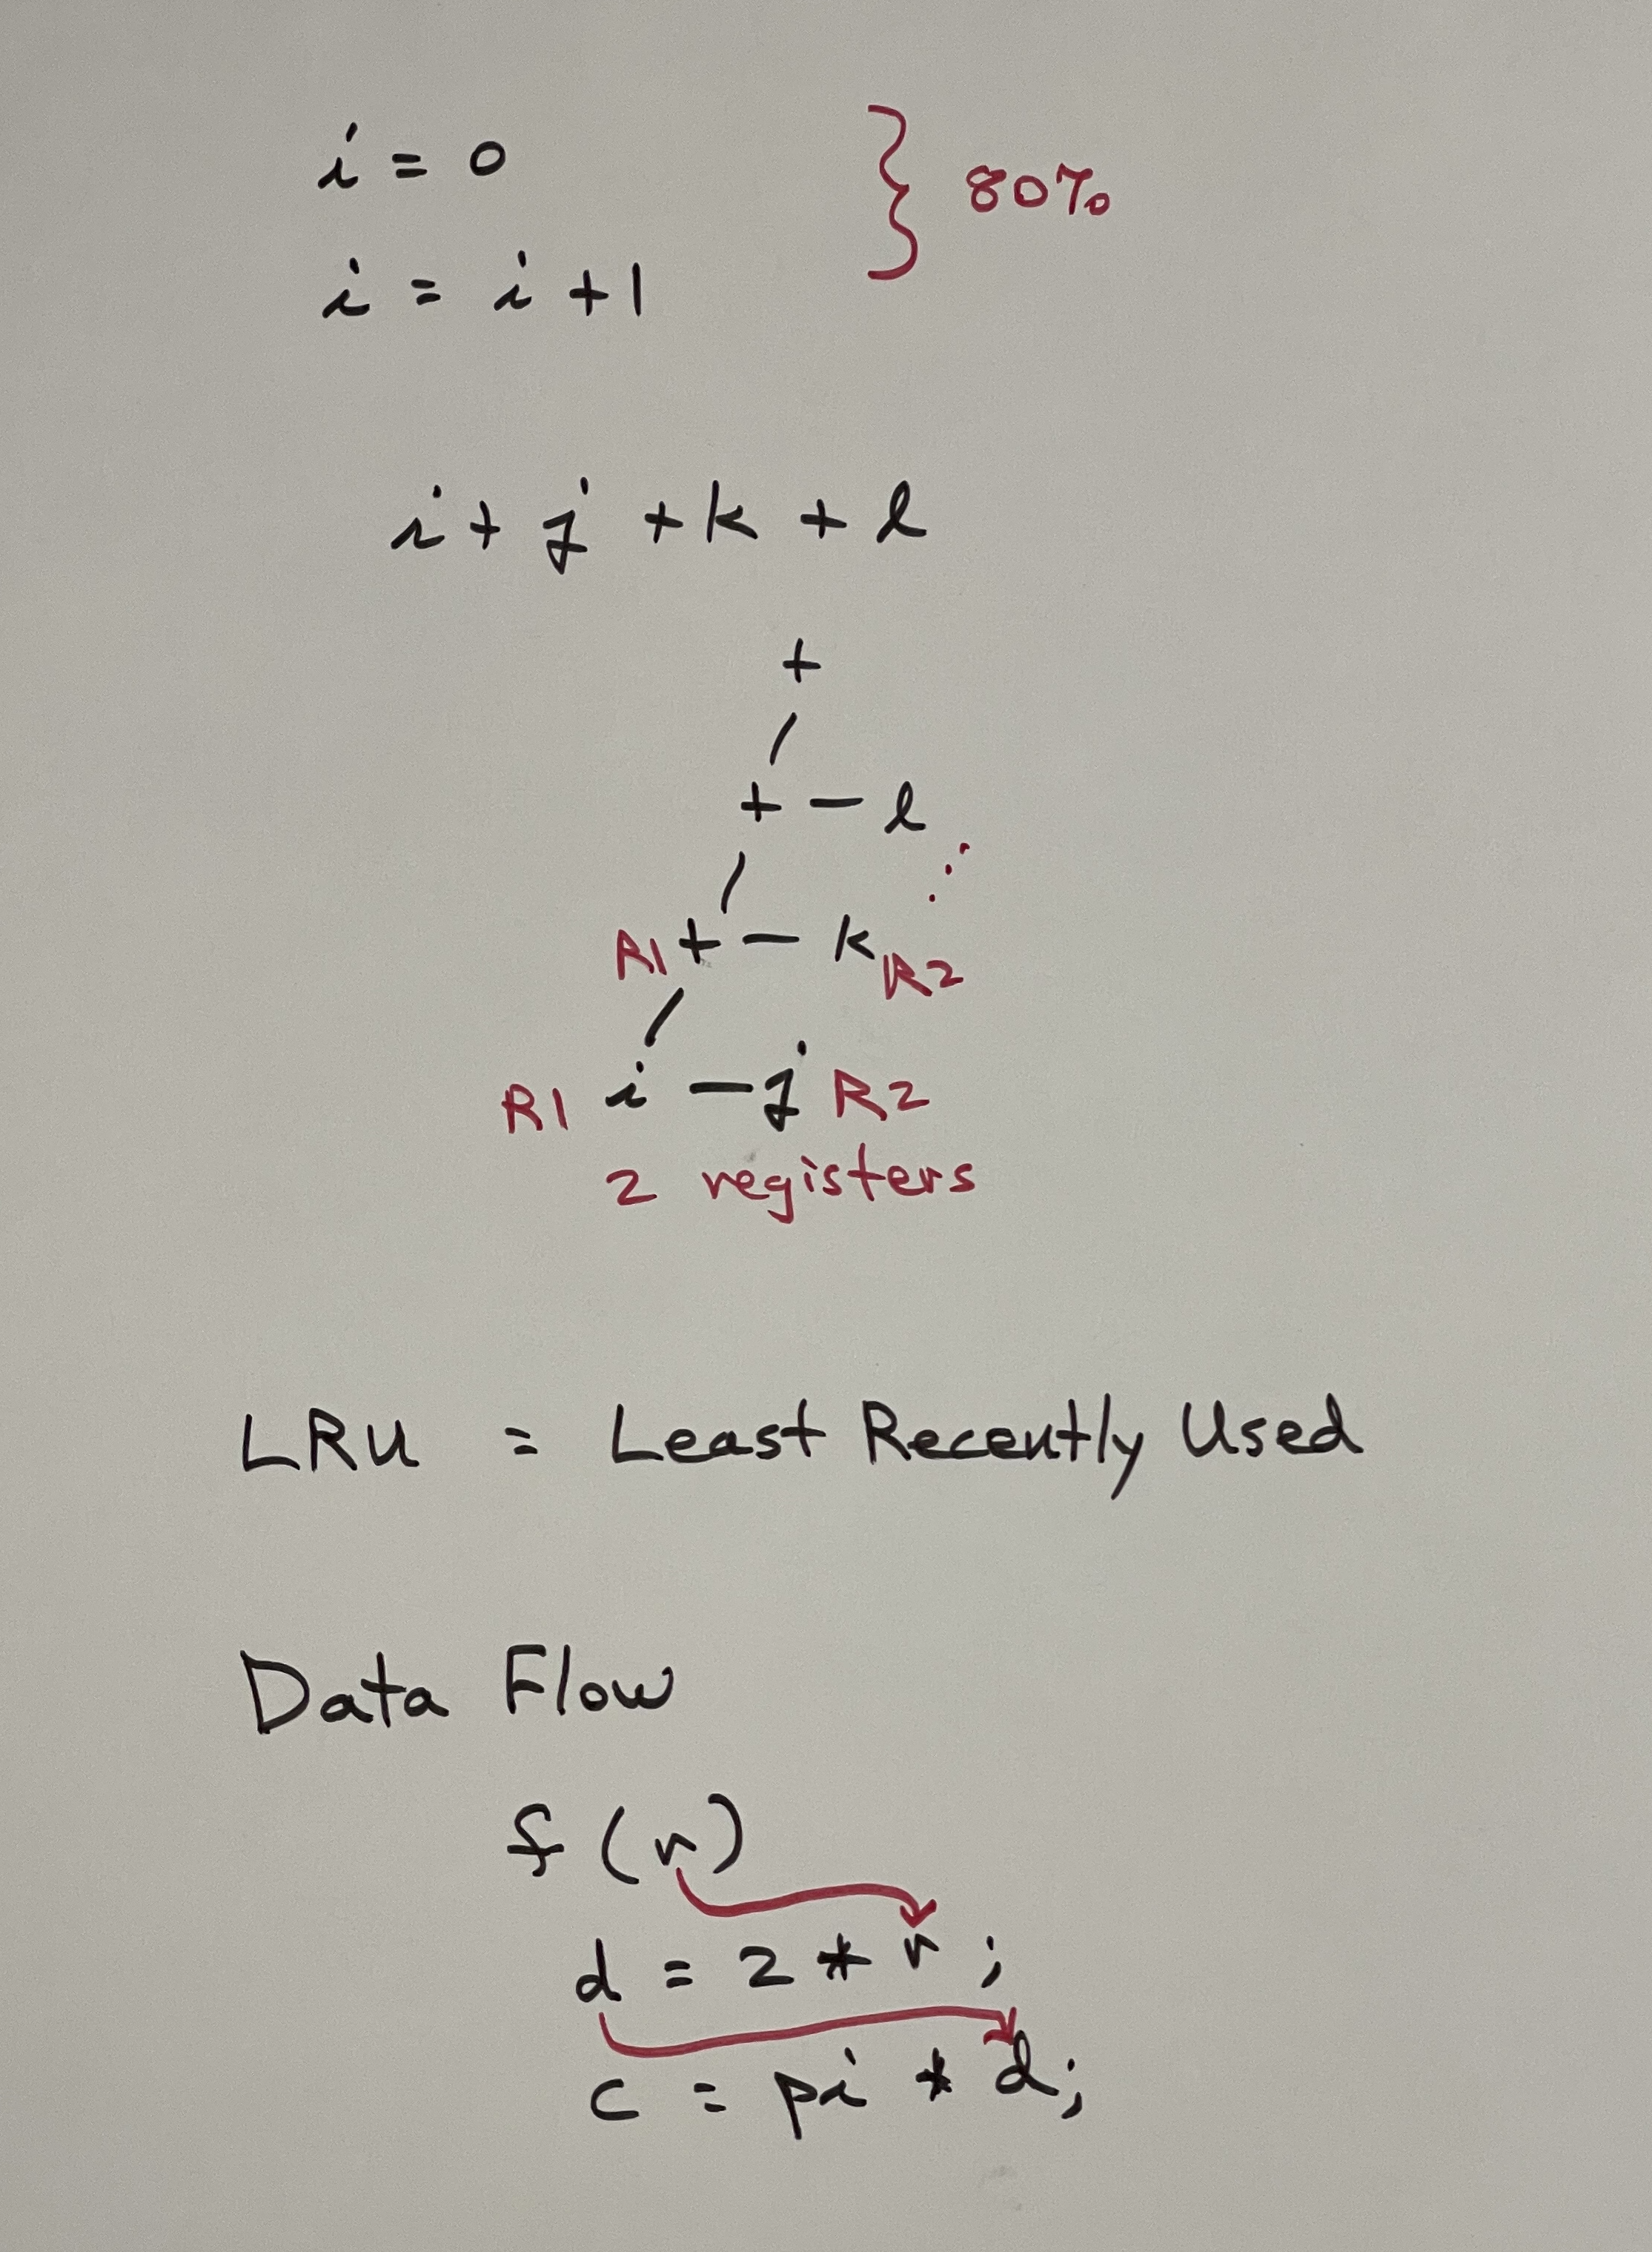 i = 0
} 80%
i = i + 1
i + j + k + l
+
/
+ — l
/
R1 + — k R2
/
R1 i — j R2
2 registers
LRU = Least Recently Used
Data Flow
f (r)
d = 2 * r ;
c = pi * d ;